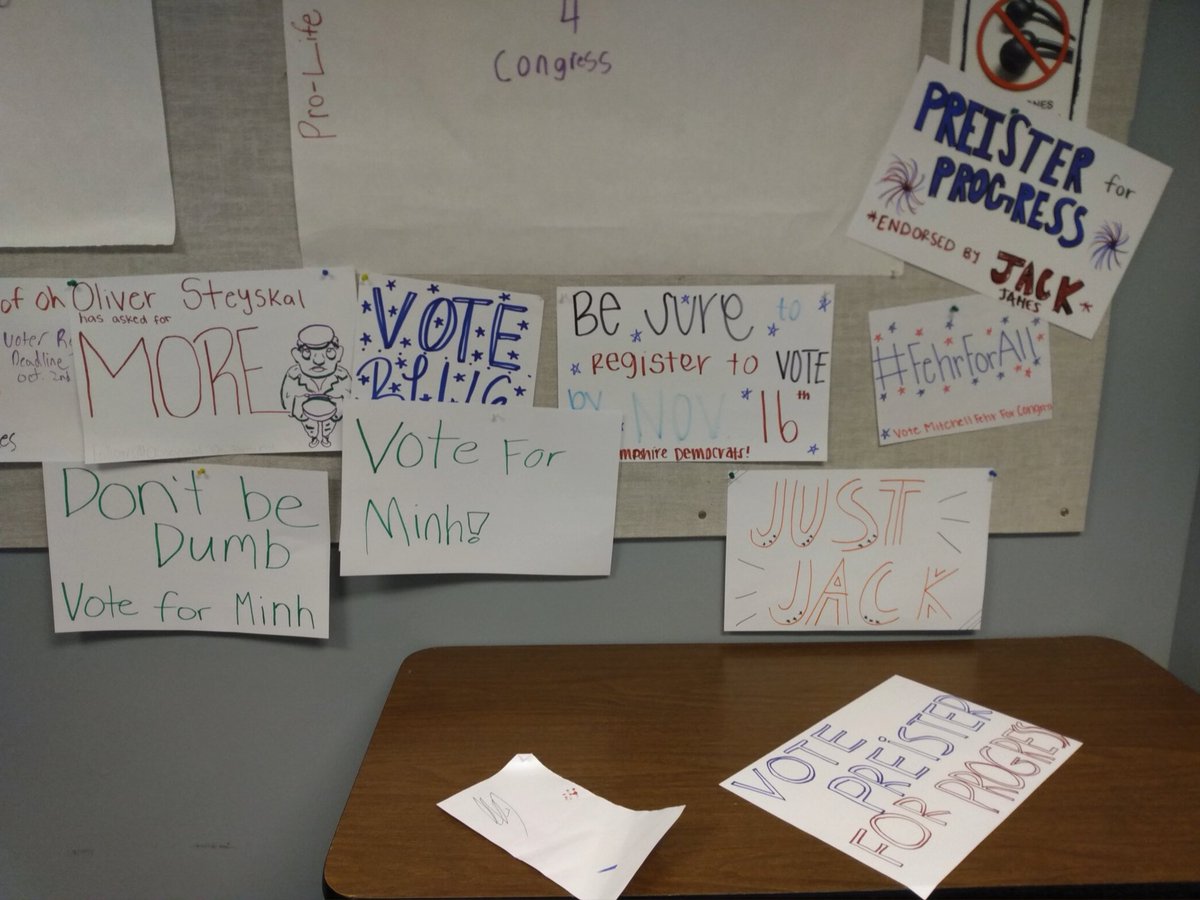 Pro-Life
4
Congress
NES
PREISTER for
PROGRESS
*ENDORSED BY JACK*
JAMES
of oh
Voter R
Deadline
oct. 2nd
es
Oliver Steyskal
has asked for
MORE
VOTE
BLUE
Be sure to
register to VOTE
by NOV. 16th
mpshire Democrats!
#FehrForAll
Vote Mitchell Fehr For Congre
Don't be
Dumb
Vote for Minh
Vote For
Minh!
JUST
JACK
VOTE
PREISTER
FOR PROGRESS